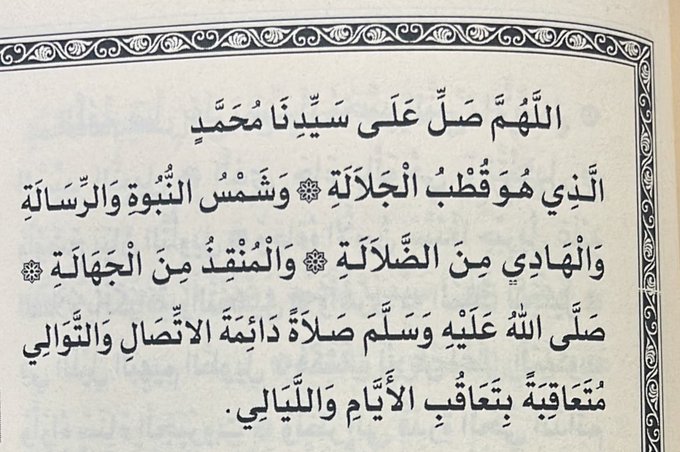 اللَّهُمَّ صَلِّ عَلَى سَيِّدِنَا مُحَمَّدٍ
الَّذِي هُوَ قُطْبُ الْجَلَالَةِ ۞ وَشَمْسُ النُّبُوةِ وَالرِّسَالَةِ
وَالْهَادِي مِنَ الضَّلَالَةِ ۞ وَالْمُنْقِذُ مِنَ الْجَهَالَةِ ۞
صَلَّى اللهُ عَلَيْهِ وَسَلَّمَ صَلَاةً دَائِمَةَ الاتِّصَالِ وَالتَّوَالِي
مُتَعَاقِبَةً بِتَعَاقُبِ الأَيَّامِ وَاللَّيَالِي.